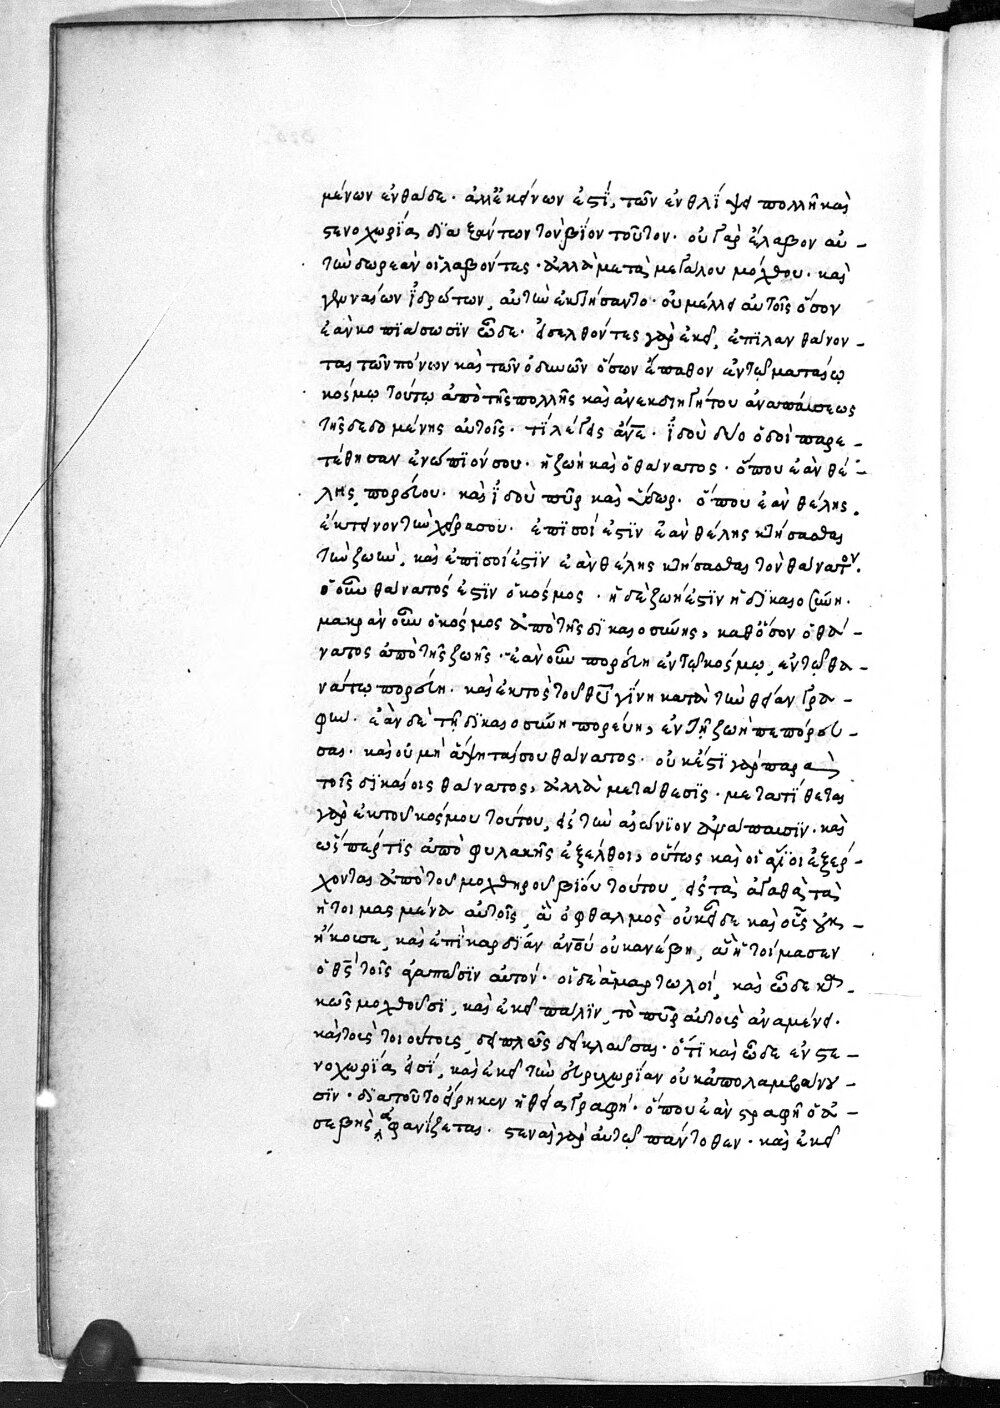 μένων ἐνθάδε· ἀλλ' ἐκείνων ἐστὶ, τῶν ἐν θλίψει πολλῆ καὶ
στενοχωρία διαξάντων τὸν βίον τοῦτον· οὐ γὰρ ἔλαβον αὐ-
τὴν δωρεὰν οἱ λαβόντες· ἀλλὰ μετὰ μεγάλου μόχθου· καὶ
γενναίων ἱδρώτων, αὐτὴν ἐκτήσαντο· οὐ μέλλει αὐτοῖς ὅσον
ἐὰν κοπιάσωσιν ὧδε· εἰσελθόντες γὰρ ἐκεῖ, ἐπιλανθάνον-
ται τῶν πόνων καὶ τῶν ὀδυνῶν ὅσων ἔπαθον ἐν τῷ ματαίῳ
κόσμῳ τούτῳ ἀπὸ τῆς πολλῆς καὶ ἀνεκδιηγήτου ἀναπαύσεως
τῆς δεδομένης αὐτοῖς· τί λέγεις ἄνε· ἰδοὺ δύο ὁδοὶ παρε-
τέθησαν ἐνώπιόν σου· ἡ ζωὴ καὶ ὁ θάνατος· ὅπου ἐὰν θέ-
λης πορεύου· καὶ ἰδοὺ πῦρ καὶ ὕδωρ· ὅπου ἐὰν θέλης
ἔκτεινον τὴν χεῖρα σου· ἐπί σοί ἐστιν ἐὰν θέλης κτήσασθαι
τὴν ζωὴν, καὶ ἐπί σοί ἐστιν ἐὰν θέλης κτήσασθαι τὸν θάνατον·
ὁ οὖν θάνατός ἐστιν ὁ κόσμος· ἡ δὲ ζωή ἐστιν ἡ δικαιοσύνη·
μακρὰν οὖν ὁ κόσμος ἀπὸ τῆς δικαιοσύνης, καθ' ὅσον ὁ θά-
νατος ἀπὸ τῆς ζωῆς· ἐὰν οὖν πορεύη ἐν τῷ κόσμῳ, ἐν τῷ θα-
νάτῳ πορεύη· καὶ ἐκτὸς τοῦ θυ γίνη κατὰ τὴν θείαν γρα-
φήν· ἐὰν δὲ τῆ δικαιοσύνη πορεύη, ἐν τῆ ζωῆ πεπόρευ-
σαι· καὶ οὐ μὴ ἅψηταί σου θάνατος· οὐκ ἔστι γὰρ παρὰ
τοῖς δικαίοις θάνατος, ἀλλὰ μετάθεσις· μετατίθεται
γὰρ ἐκ τοῦ κόσμου τούτου, εἰς τὴν αἰώνιον ἀνάπαυσιν· καὶ
ὥσπερ τίς ἀπὸ φυλακῆς ἐξέλθοι, οὕτως καὶ οἱ ἅγιοι ἐξέρ-
χονται ἀπὸ τοῦ μοχθηροῦ βίου τούτου, εἰς τὰ ἀγαθὰ τὰ
ἡτοιμασμένα αὐτοῖς, ἃ ὀφθαλμὸς οὐκ εἶδε καὶ οὖς οὐκ
ἤκουσε, καὶ ἐπὶ καρδίαν ανου οὐκ ἀνέβη, ἃ ἡτοίμασεν
ὁ θς τοῖς ἀγαπῶσιν αὐτόν· οἱ δὲ ἁμαρτωλοί, καὶ ὧδε κα-
κῶς μοχθοῦσι, καὶ ἐκεῖ πάλιν, τὸ πῦρ αὐτοὺς ἀναμένει·
καὶ τοὺς τοιούτους, δεῖ πλεῖον δεῖ κλαῦσαι· ὅτι καὶ ὧδε ἐν στε-
νοχωρία εἰσί, καὶ ἐκεῖ τὴν εὐρυχωρίαν οὐκ ἀπολαμβάνου-
σιν· διὰ τοῦτο εἴρηκεν ἡ θεία γραφή· ὅπου ἐὰν στραφῆ ὁ ἀ-
σεβὴς ἀφανίζεται· στενὰ γὰρ αὐτῷ πάντοθεν· καὶ ἐκεῖ